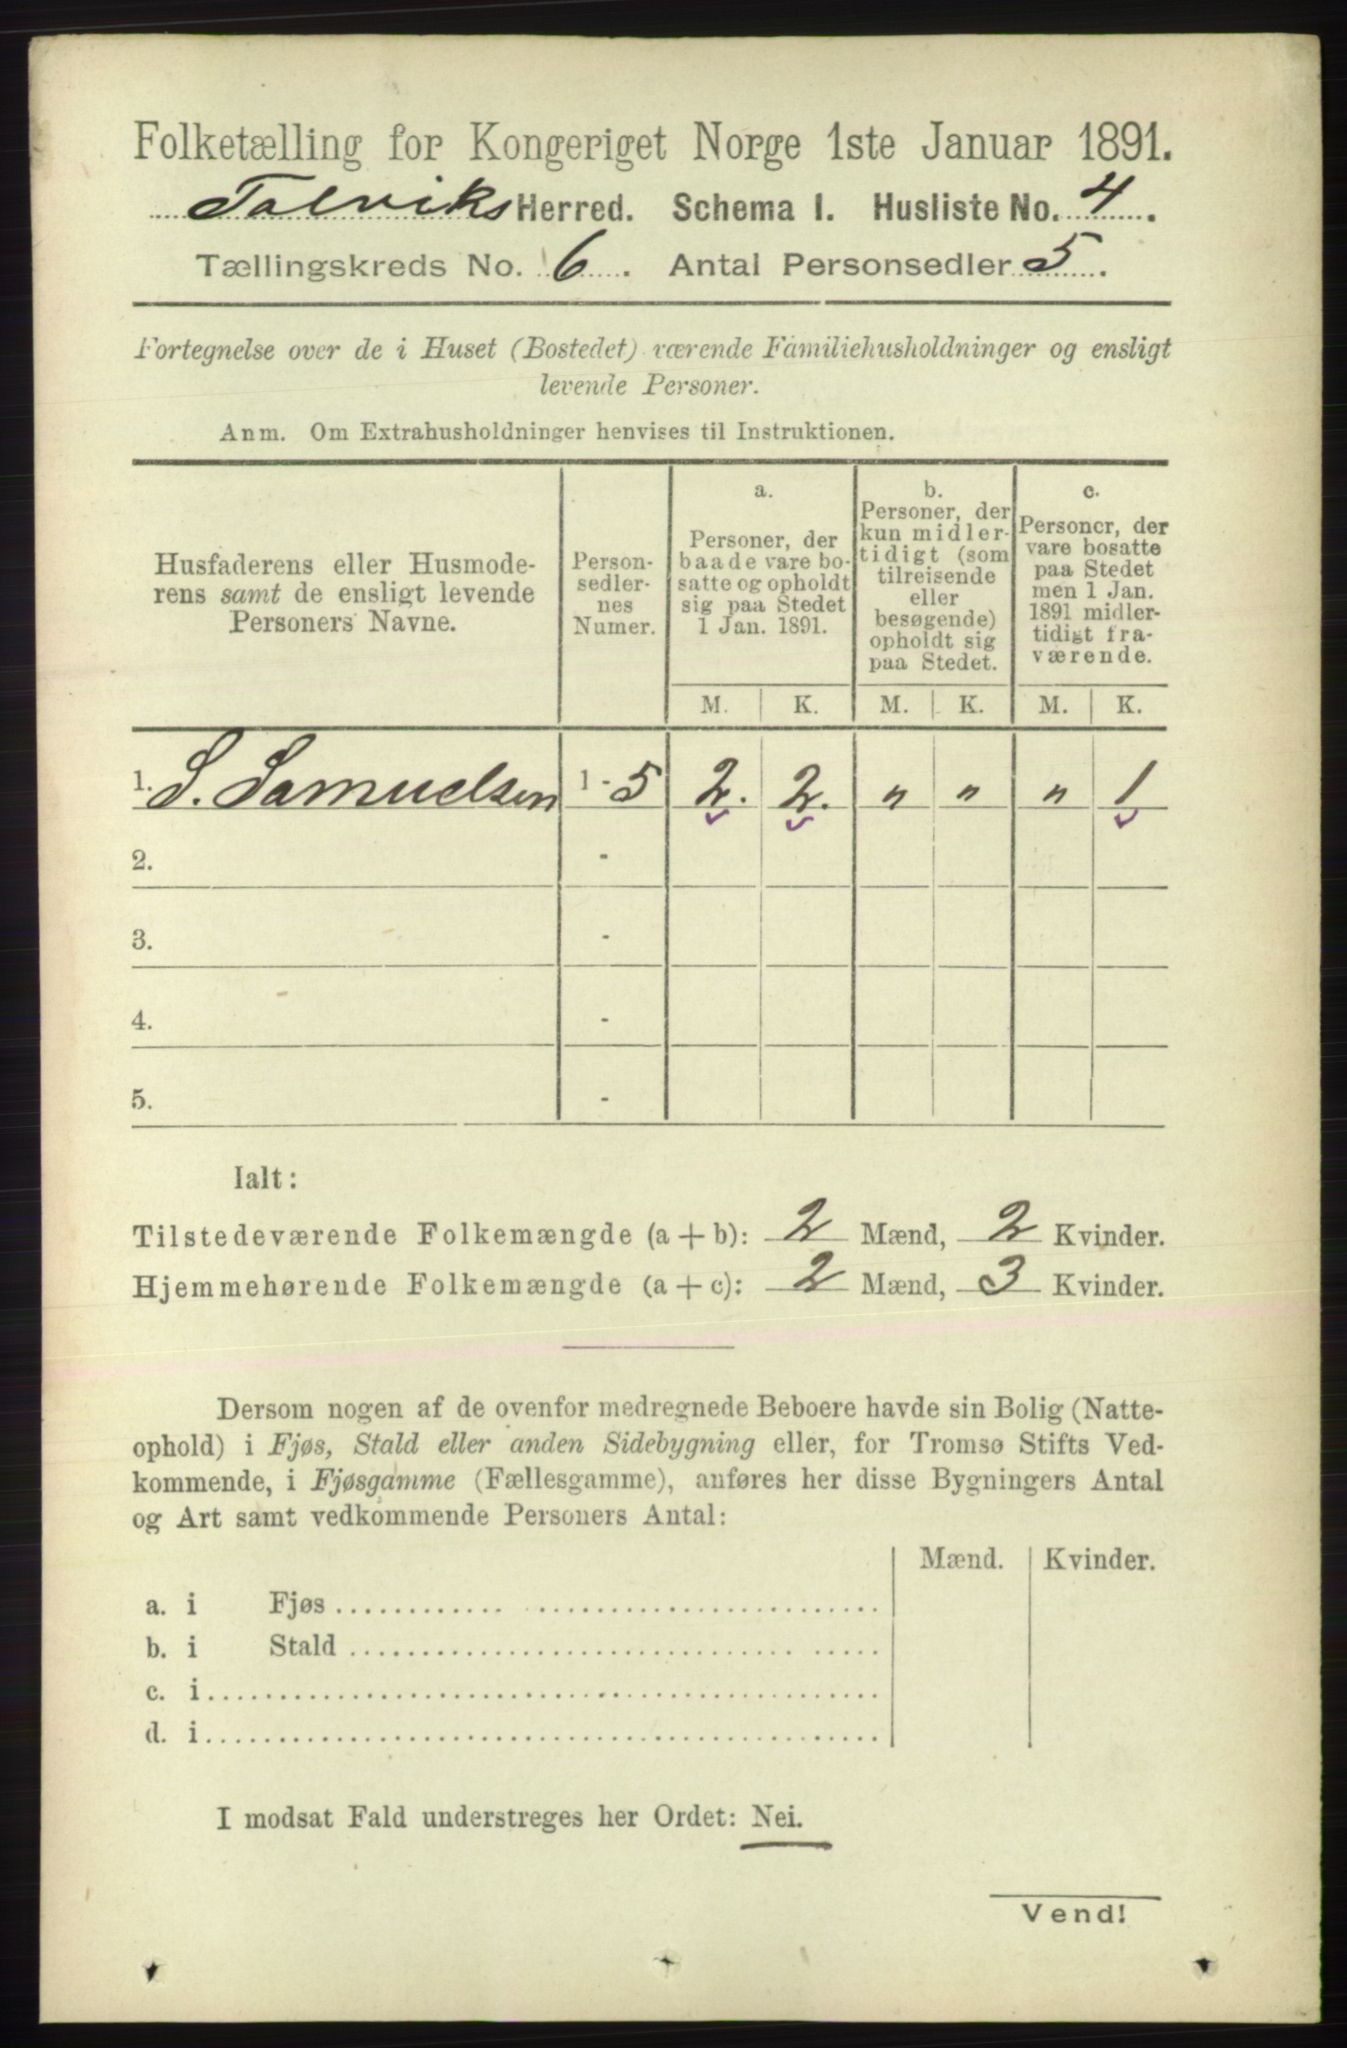 Folketælling for Kongeriget Norge 1ste Januar 1891.
Talviks Herred. Schema I. Husliste No. 4.
Tællingskreds No. 6. Antal Personsedler 5.
Fortegnelse over de i Huset (Bostedet) værende Familiehusholdninger og ensligt
levende Personer.
Anm. Om Extrahusholdninger henvises til Instruktionen.
Husfaderens eller Husmode-
rens samt de ensligt levende
Personers Navne.
Person-
sedler-
nes
Numer.
a.
Personer, der
baade vare bo-
satte og opholdt
sig paa Stedet
1 Jan. 1891.
b.
Personer, der
kun midler-
tidigt (som
tilreisende
eller
besøgende)
opholdt sig
paa Stedet.
c.
Personer, der
vare bosatte
paa Stedet
men 1 Jan.
1891 midler-
tidigt fra-
værende.
M. K. M. K. M. K.
1. S. Samuelsen 1 - 5 2. 2. " " " 1
2. -
3. -
4. -
5. -
Ialt:
Tilstedeværende Folkemængde (a + b): 2 Mænd, 2 Kvinder.
Hjemmehørende Folkemængde (a + c): 2 Mænd, 3 Kvinder.
Dersom nogen af de ovenfor medregnede Beboere havde sin Bolig (Natte-
ophold) i Fjøs, Stald eller anden Sidebygning eller, for Tromsø Stifts Ved-
kommende, i Fjøsgamme (Fællesgamme), anføres her disse Bygningers Antal
og Art samt vedkommende Personers Antal:
Mænd. Kvinder.
a. i Fjøs
b. i Stald
c. i
d. i
I modsat Fald understreges her Ordet: Nei.
Vend!